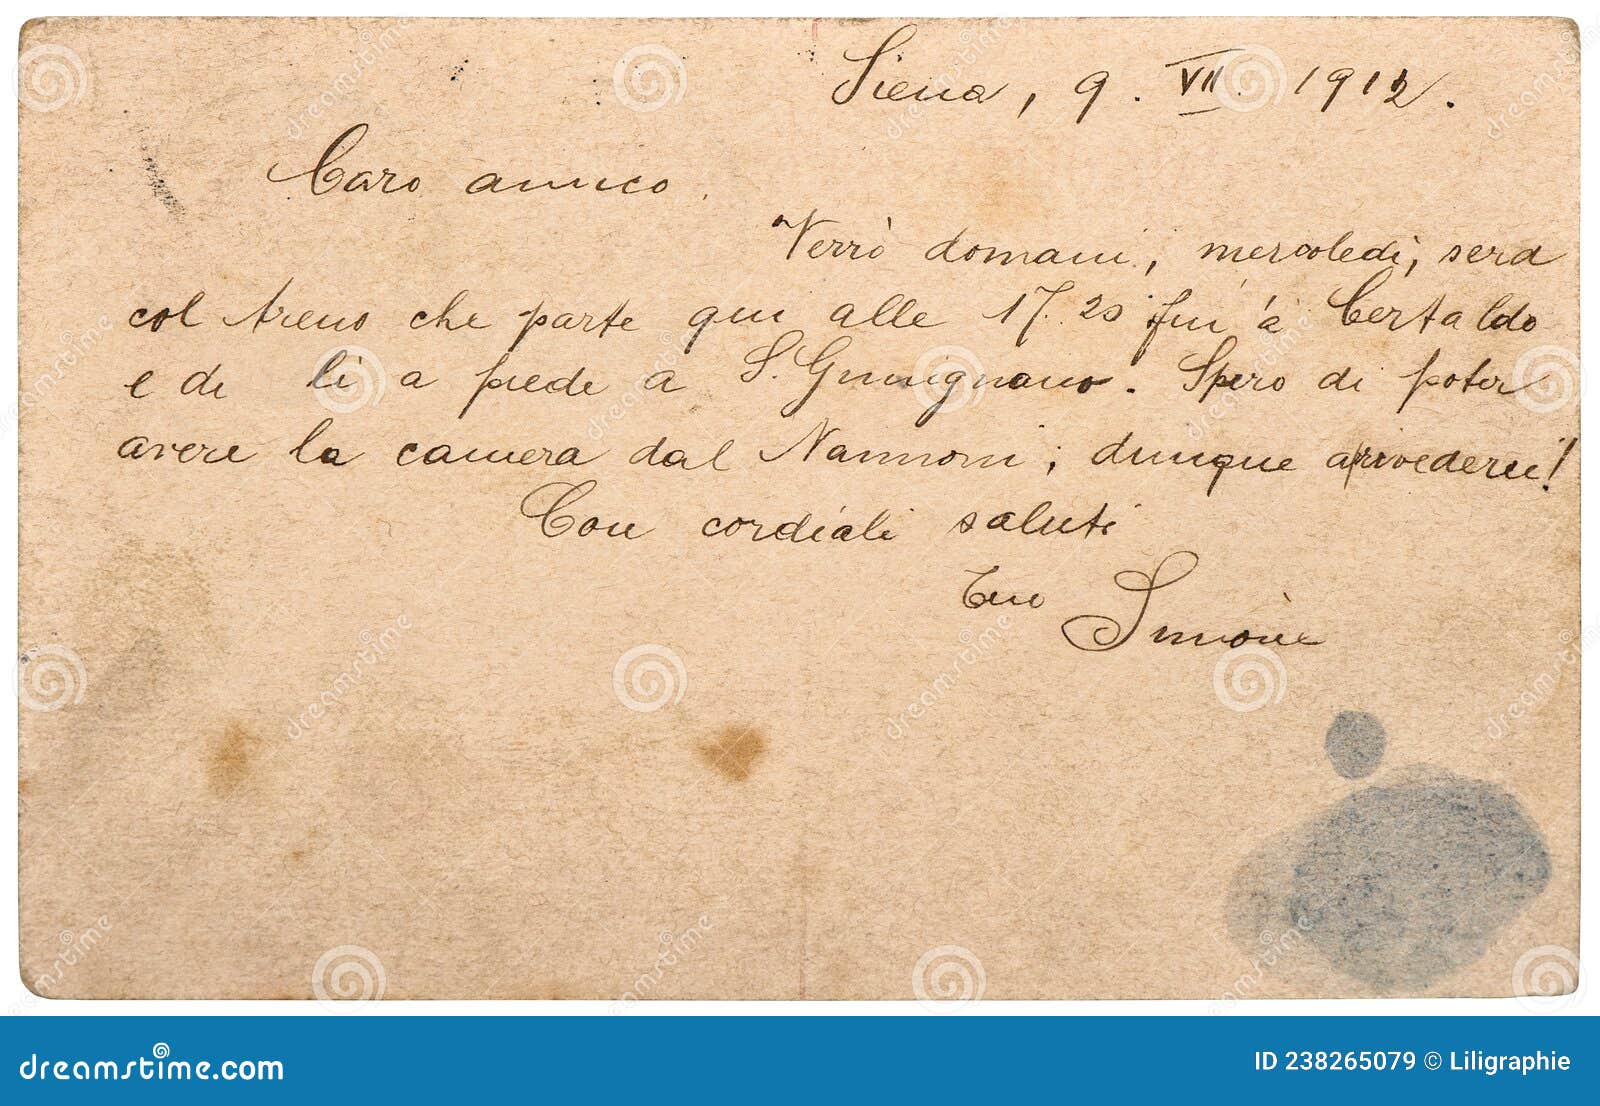 Siena, 9. VII. 1912.
Caro amico.
Verrò domani, mercoledì, sera
col treno che parte qui alle 17.20 fin' a Certaldo
e di lì a piede a S. Gimignano. Spero di poter
avere la camera dal Nannoni; dunque arrivederci!
Con cordiali saluti
Tuo Simone
dreamstime.com
ID 238265079 © Liligraphie